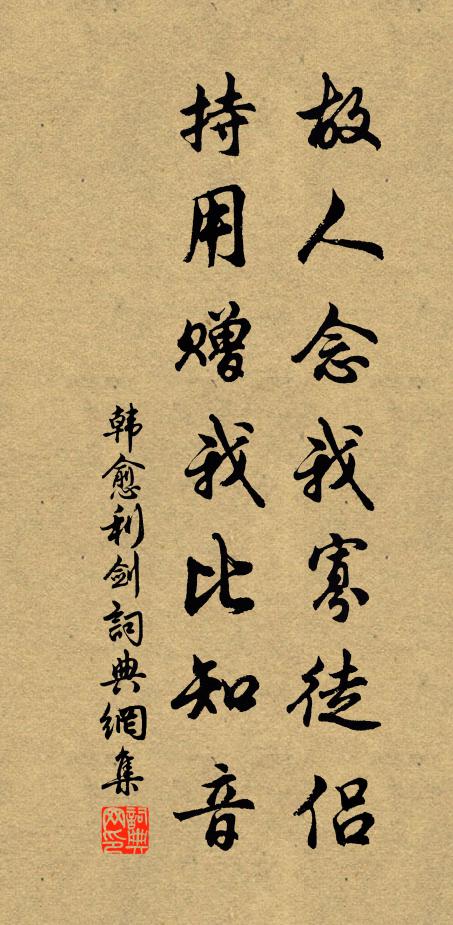 故人念我寡徒侣
持用赠我比知音
韩愈利剑詞典網集
詞典網印